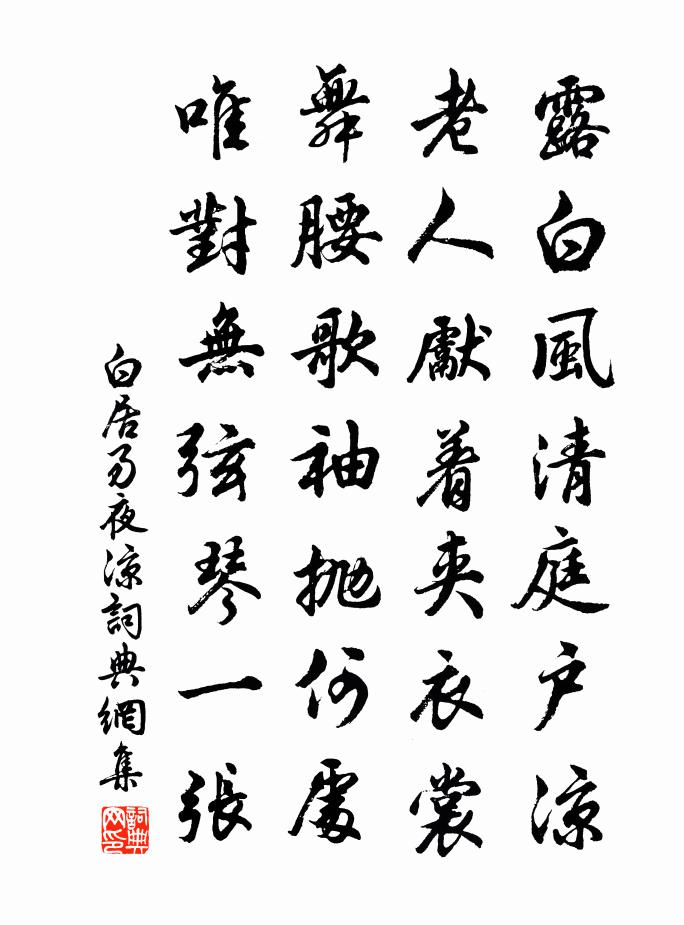 露白風清庭户涼
老人獻着夾衣裳
舞腰歌袖拋何處
唯對無弦琴一張
白居易夜涼詞典網集
詞典网印